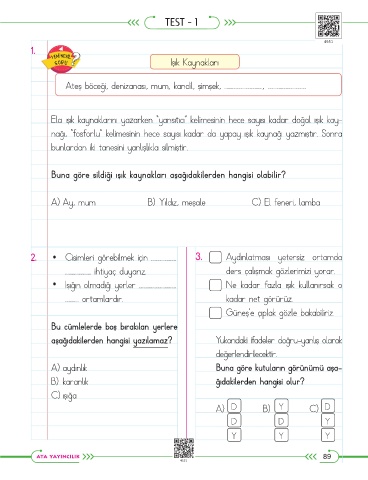 TEST - 1
1.
YENİ NESİL
SORU
Işık Kaynakları
Ateş böceği, denizanası, mum, kandil, şimşek, .................... , ....................
Ela ışık kaynaklarını yazarken "yansıtıcı" kelimesinin hece sayısı kadar doğal ışık kay-
nağı, "fosforlu" kelimesinin hece sayısı kadar da yapay ışık kaynağı yazmıştır. Sonra
bunlardan iki tanesini yanlışlıkla silmiştir.
Buna göre sildiği ışık kaynakları aşağıdakilerden hangisi olabilir?
A) Ay, mum B) Yıldız, meşale C) El feneri, lamba
2. • Cisimleri görebilmek için ............
............ ihtiyaç duyarız.
• Işığın olmadığı yerler ..................
....... ortamlardır.
Bu cümlelerde boş bırakılan yerlere
aşağıdakilerden hangisi yazılamaz?
A) aydınlık
B) karanlık
C) ışığa
3. Aydınlatması yetersiz ortamda
ders çalışmak gözlerimizi yorar.
Ne kadar fazla ışık kullanırsak o
kadar net görürüz.
Güneş'e çıplak gözle bakabiliriz.
Yukarıdaki ifadeler doğru-yanlış olarak
değerlendirilecektir.
Buna göre kutuların görünümü aşa-
ğıdakilerden hangisi olur?
A) D B) Y C) D
D D Y
Y Y Y
ATA YAYINCILIK
89